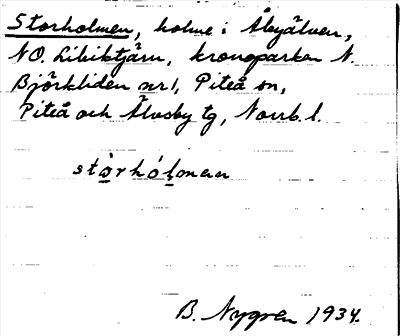 Storholmen, holme i Åbyälven,
NO. Libiktjärn, kronoparken N.
Björkliden nr 1, Piteå sn,
Piteå och Älvsby tg, Norrb. l.
stòrhólmen
B. Nygren 1934.